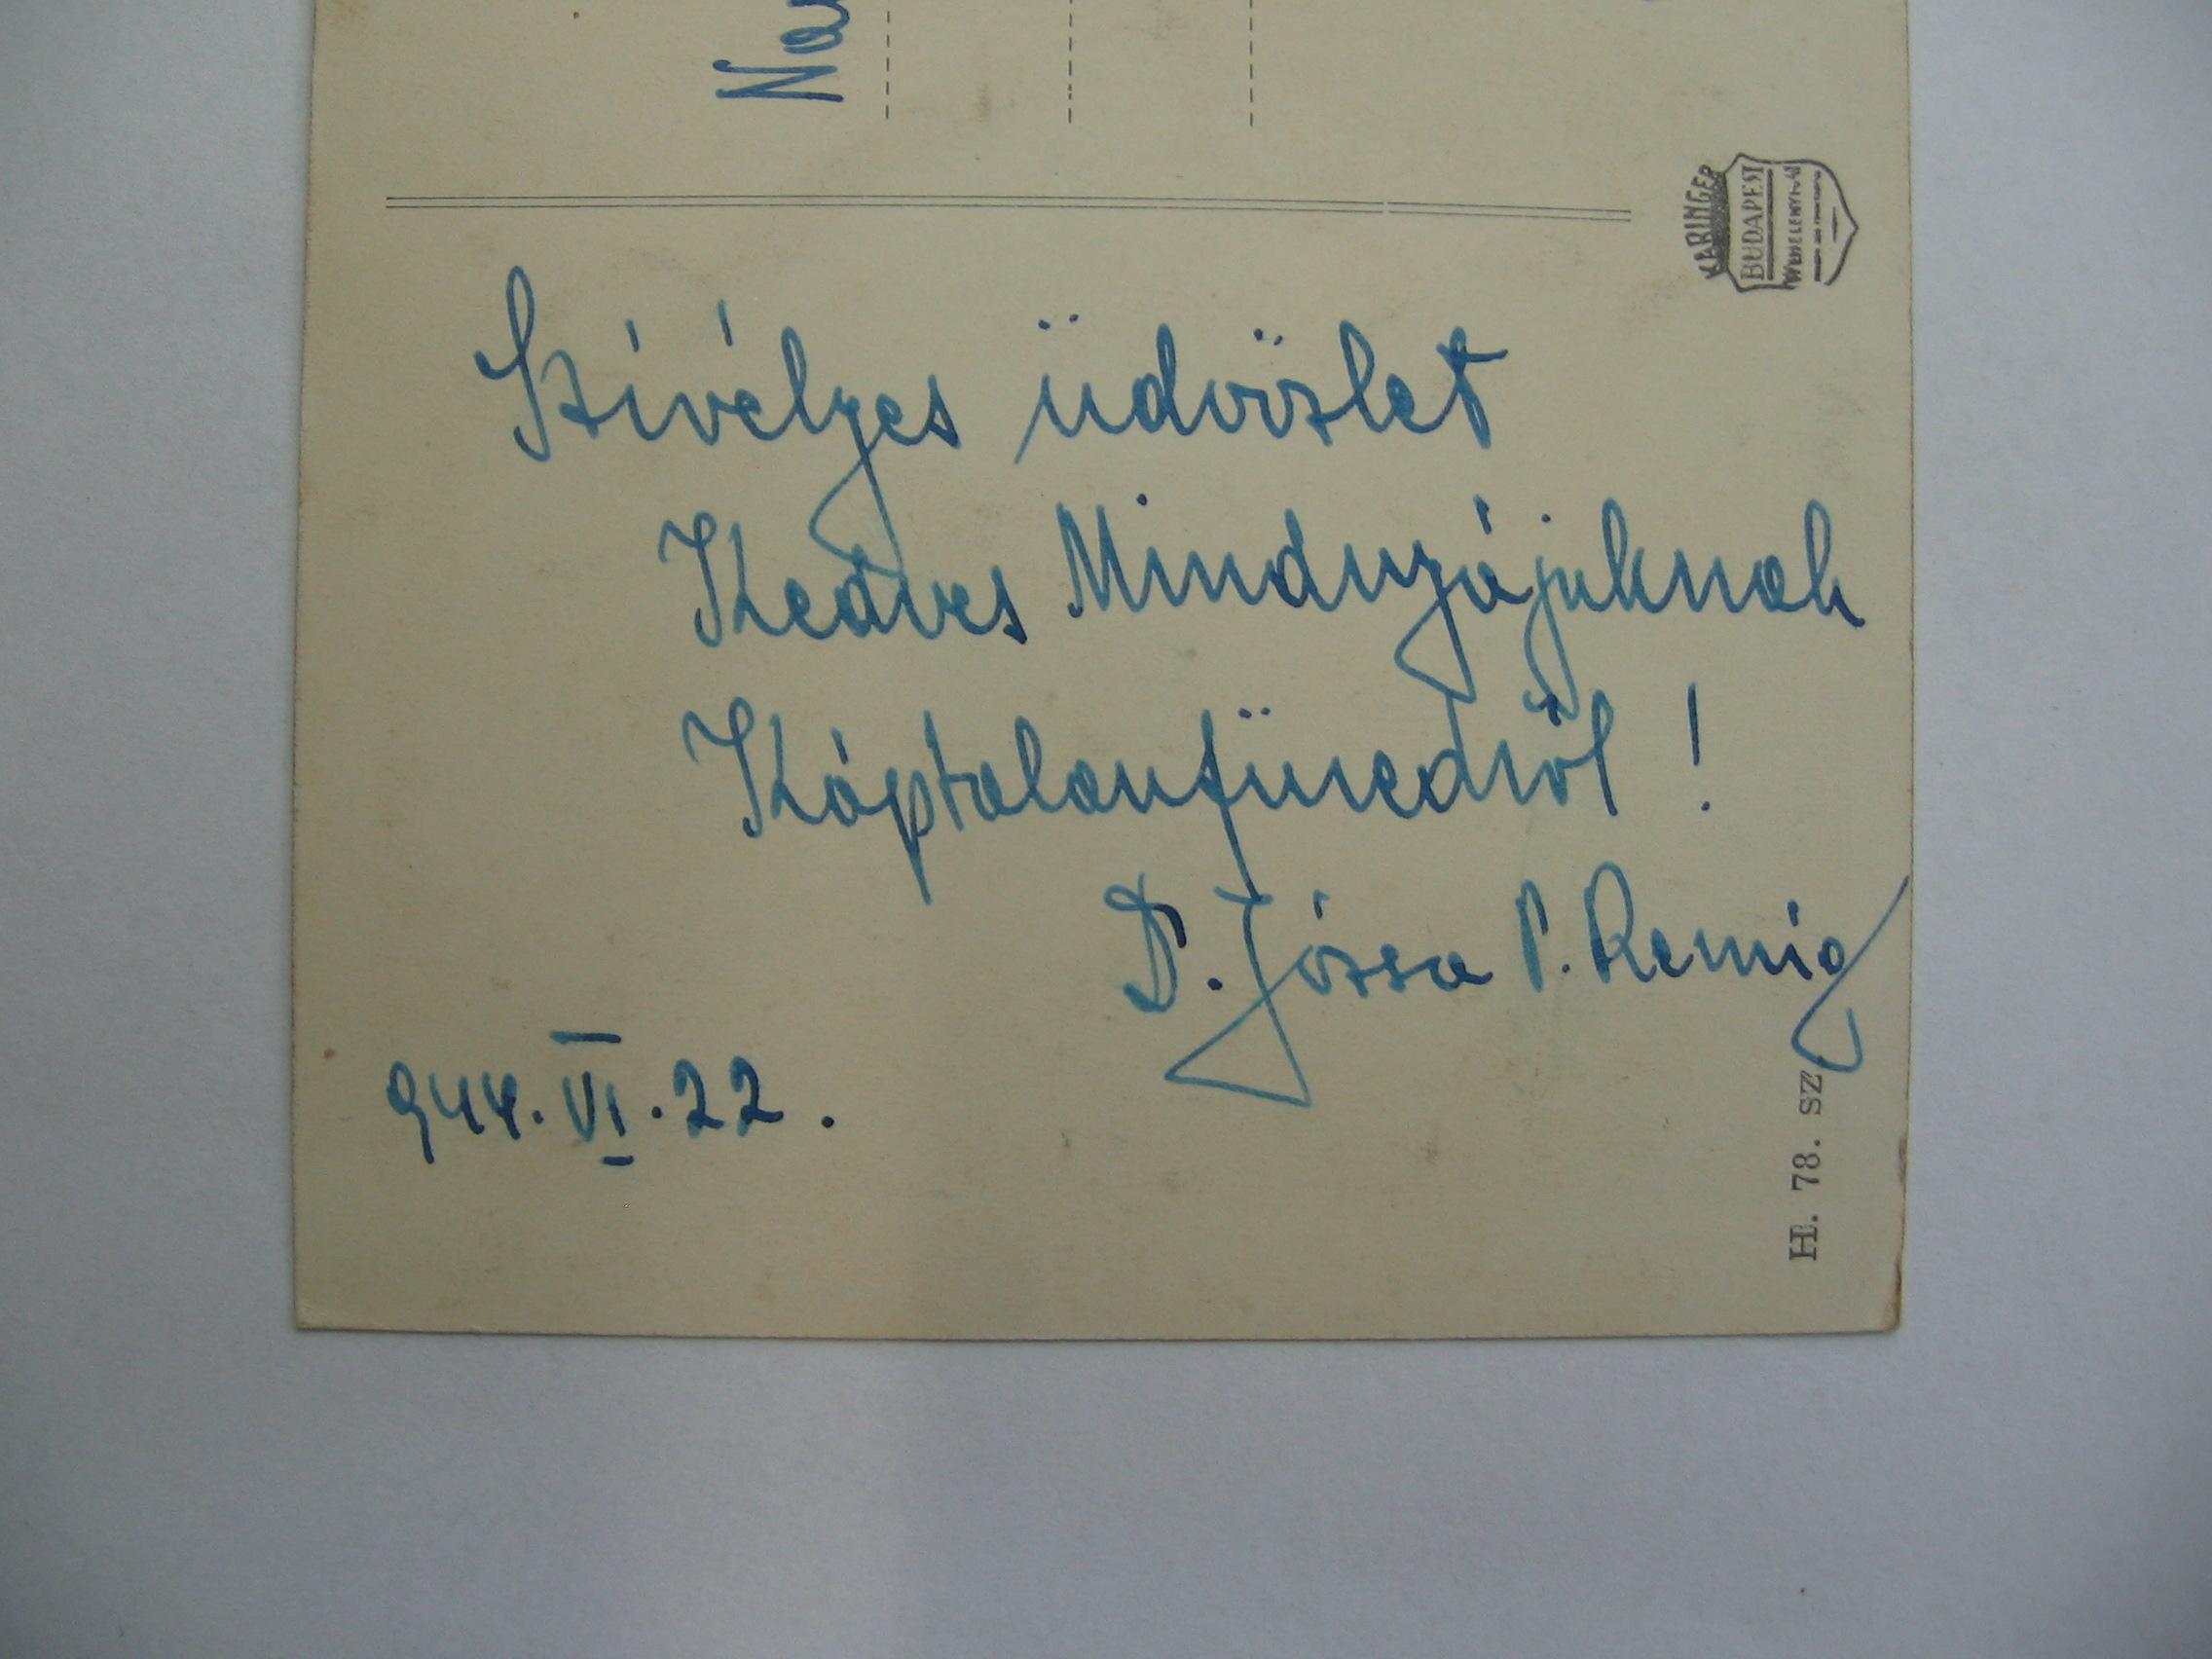 KARINGER
BUDAPEST
Szívélyes üdvözlet
Kedves Mindnyájuknak
Káptalanfüredről !
D. Józsa P. Remig
944. VI. 22.
HL. 78. SZ